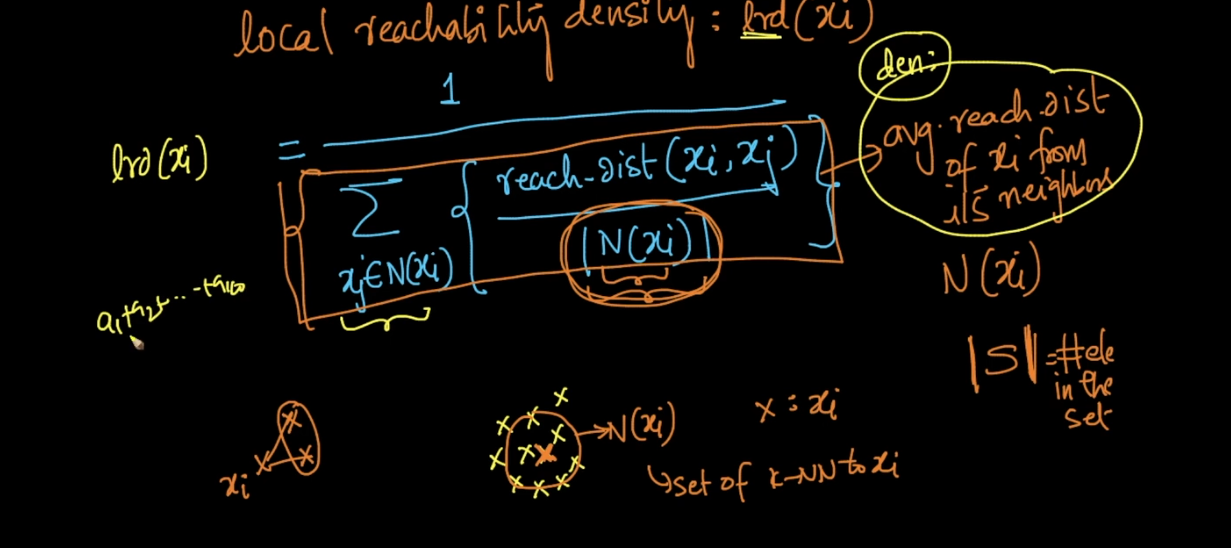 local reachability density : lrd (xi)
den:
1
lrd (xi) =
Σ { reach-dist (xi, xj)
xj ∈ N(xi)
| N(xi) | }
avg. reach. dist
of xi from
it's neighbors
N (xi)
a1+a2+...+a100
|S| = #ele
in the
set
x : xi
N(xi)
set of K-NN to xi
xi